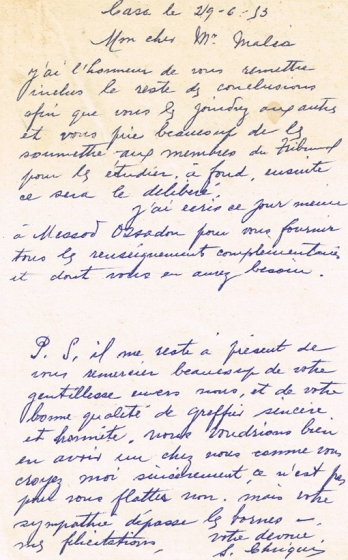 Casa le 29-6-53
Mon cher Mr Malka
j'ai l'honneur de vous remettre
inclus le reste des conclusions
afin que vous les joindrez aux autres
et vous prie beaucoup de les
soumettre aux membres du Tribunal
pour les étudier à fond, ensuite
ce sera le délibéré
j'ai écris ce jour meme
à Messod Ossadon pour vous fournir
tous les renseignements complémentaires
et dont vous en aurez besoin.
P. S, il me reste à présent de
vous remercier beaucoup de votre
gentillesse envers nous, et de votre
bonne qualité de greffier sincère
et honnète, nous voudrions bien
en avoir un chez nous comme vous
croyez moi sincèrement, ce n'est pas
pour vous flatter non. mais votre
sympathie dépasse les bornes –
mes félicitations, votre devoué,